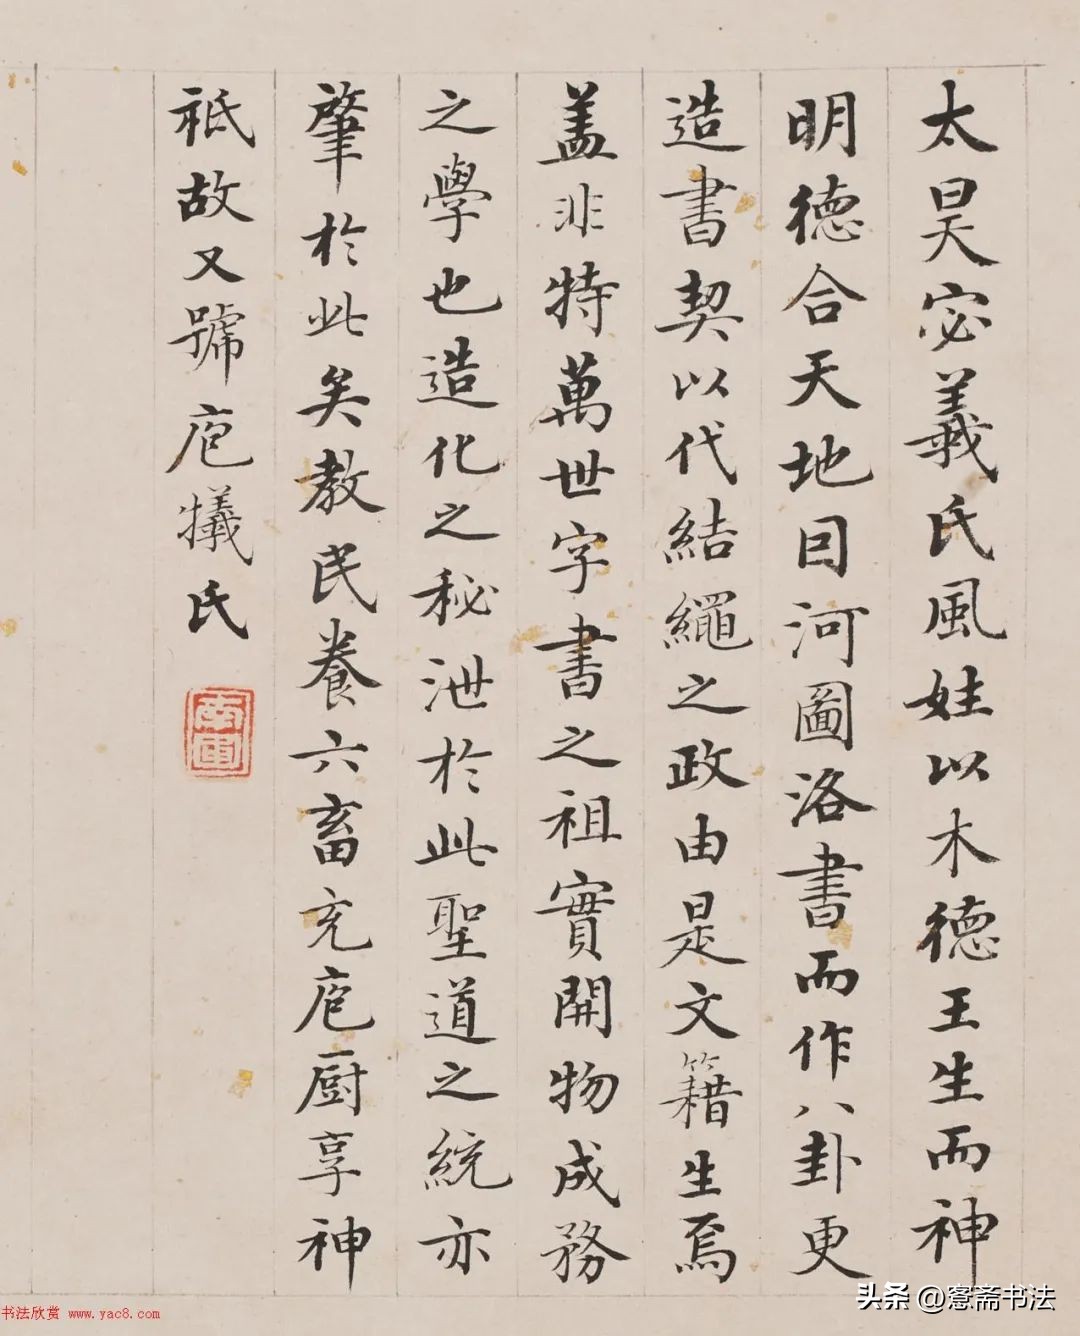 太昊宓羲氏風姓以木德王生而神
明德合天地因河圖洛書而作八卦更
造書契以代結繩之政由是文籍生焉
盖非特萬世字書之祖實開物成務
之學也造化之秘泄於此聖道之統亦
肇於此矣教民養六畜充庖厨享神
祇故又號庖犧氏
书法欣赏 www.yac8.com
头条 @窓斋书法